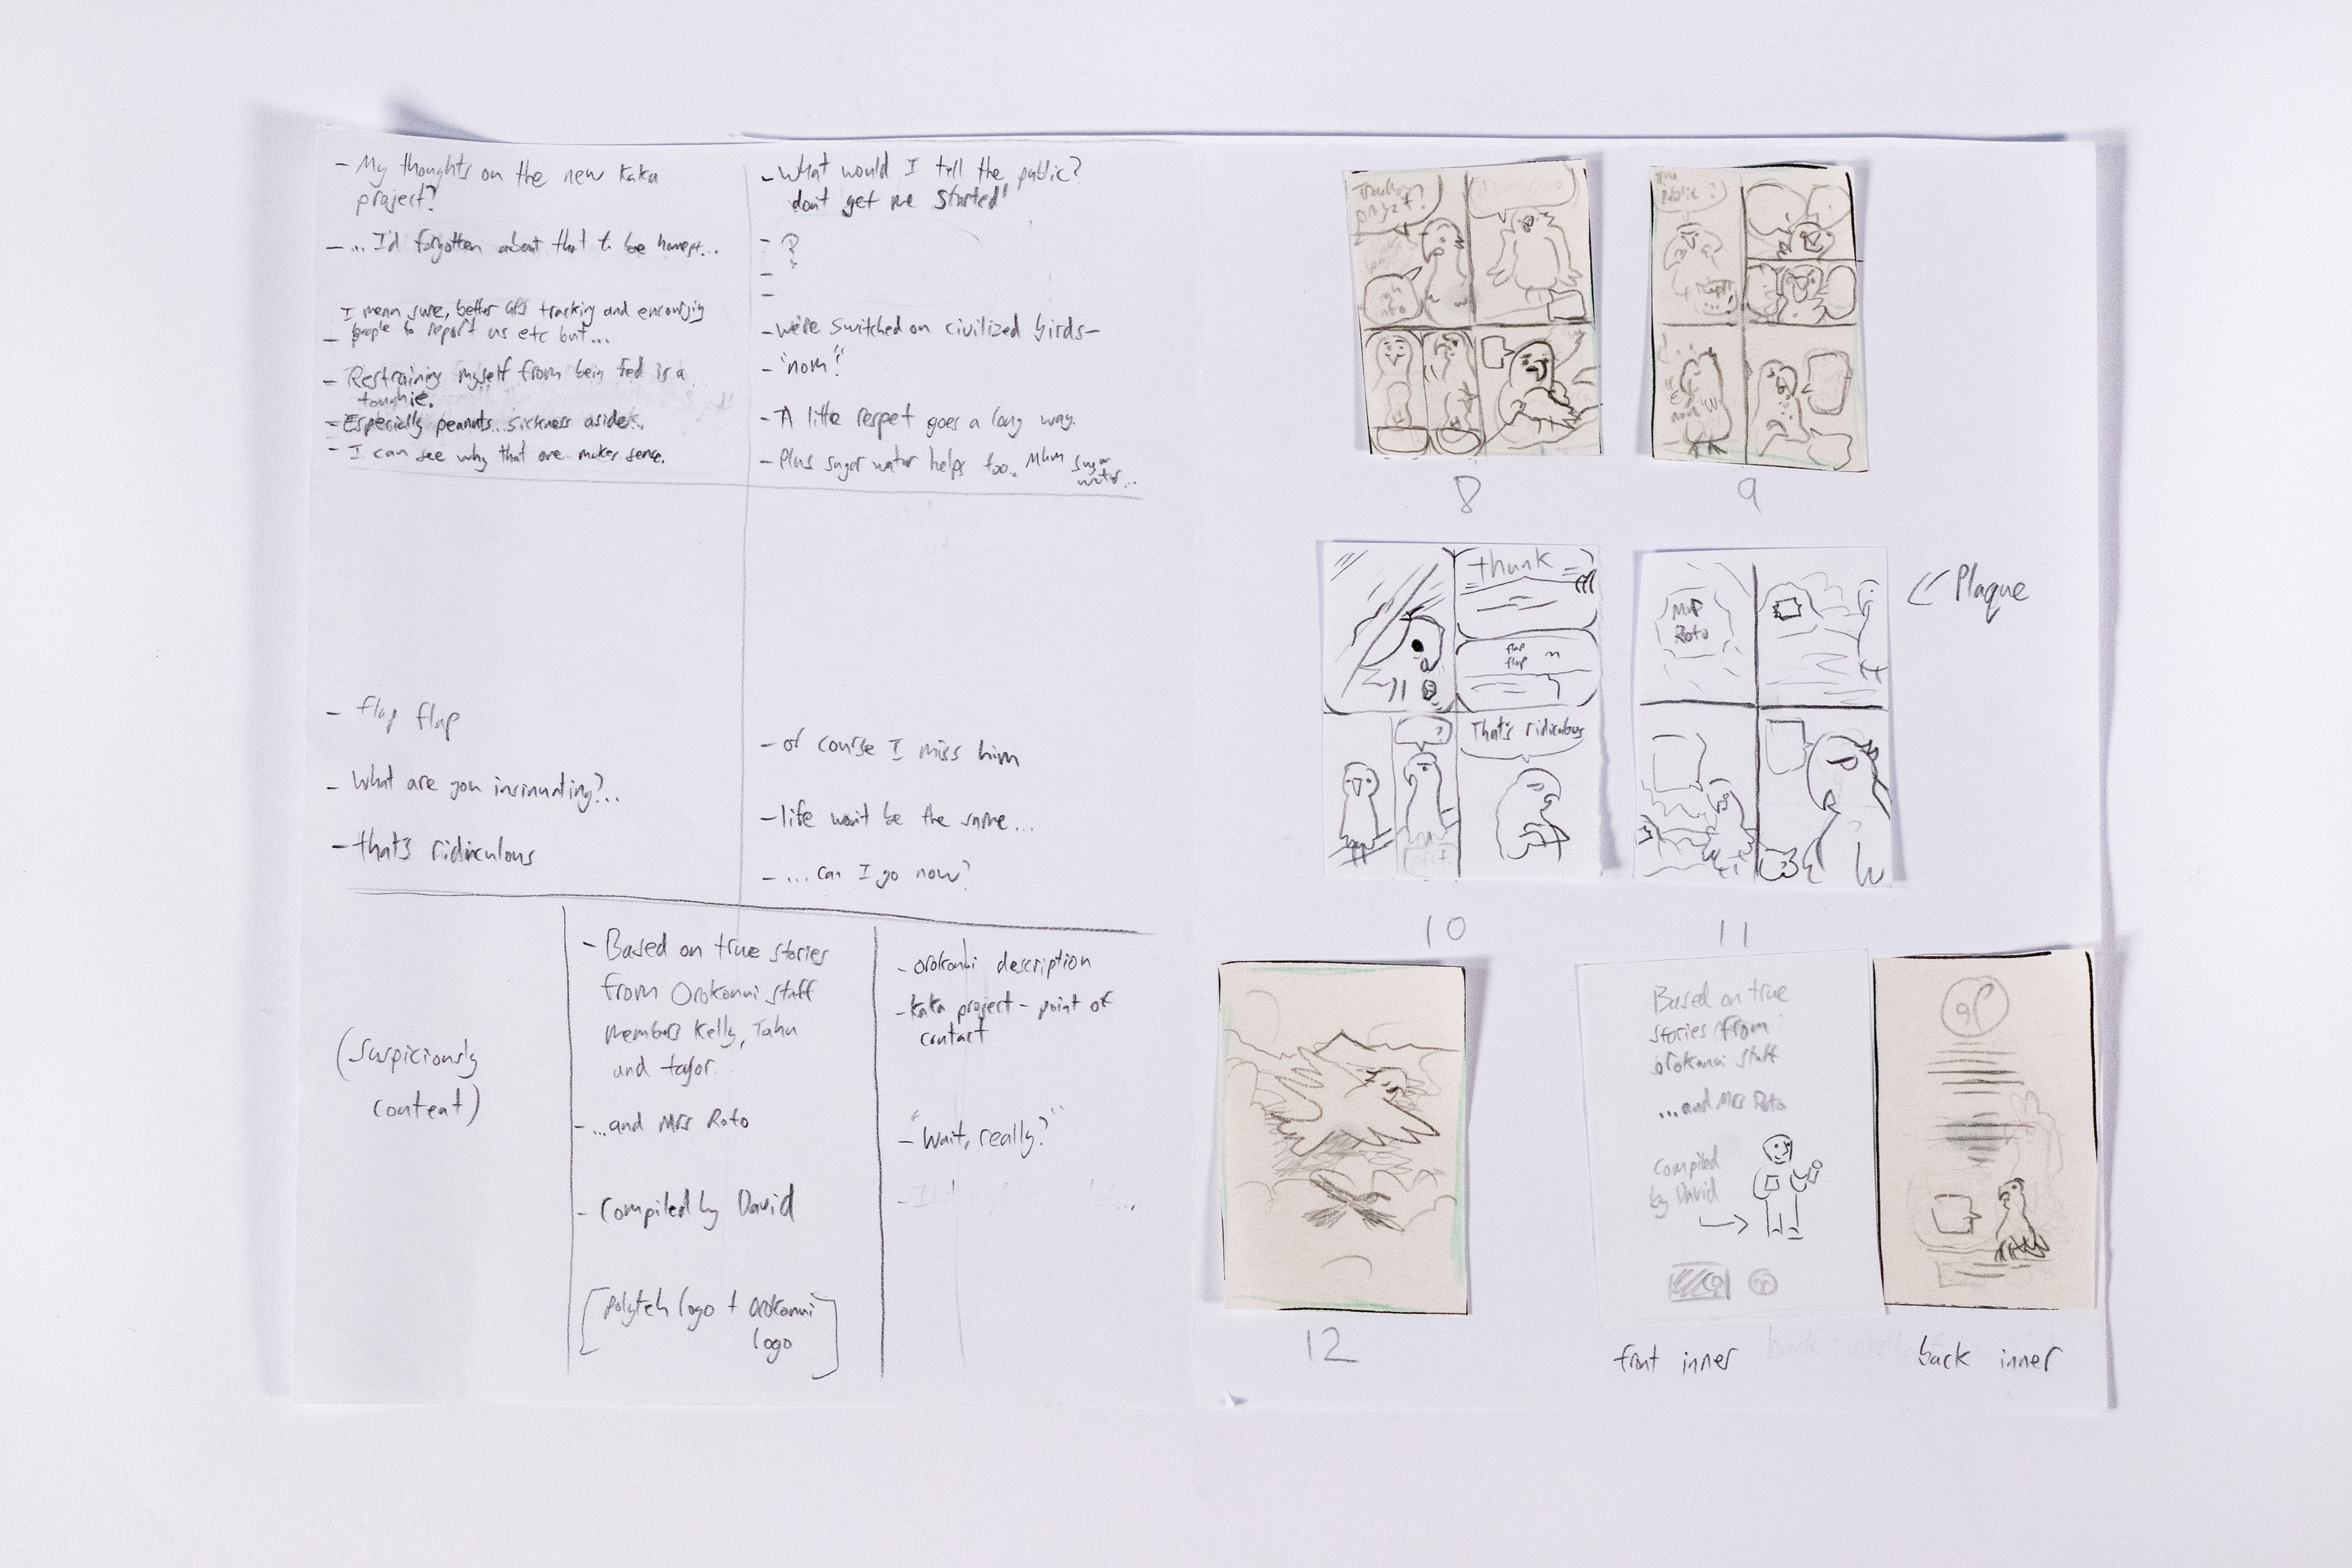 - My thoughts on the new kaka
project?
- ... I'd forgotten about that to be honest...
I mean sure, better GPS tracking and encouraging
- people to report us etc but...
- Restraining myself from being fed is a
toughie.
- Especially peanuts.. sickness aside..
- I can see why that one makes sense.
- What would I tell the public?
don't get me started"
- ?
-
-
- we're switched on civilized birds-
- "nom"
- A little respect goes a long way.
- Plus sugar water helps too. Mhm sugar
water...
- flap flap
- What are you insinuating?..
- that's ridiculous
- of course I miss him
- life won't be the same...
- ...can I go now?
(suspiciously
content)
- Based on true stories
from Orokonui staff
members Kelly, Tahu
and taylor.
- ...and Mrs Roto
- Compiled by David
[polytech logo + Orokonui
logo]
- orokonui description
- kaka project - point of
contact
- "Wait, really?"
project?
8
public?
nom
9
thunk
flap
flap
?
That's ridiculous
10
Roto
<< Plaque
11
12
Based on true
stories from
orokonui staff
...and Mrs Roto
Compiled
by David
front inner
back inner